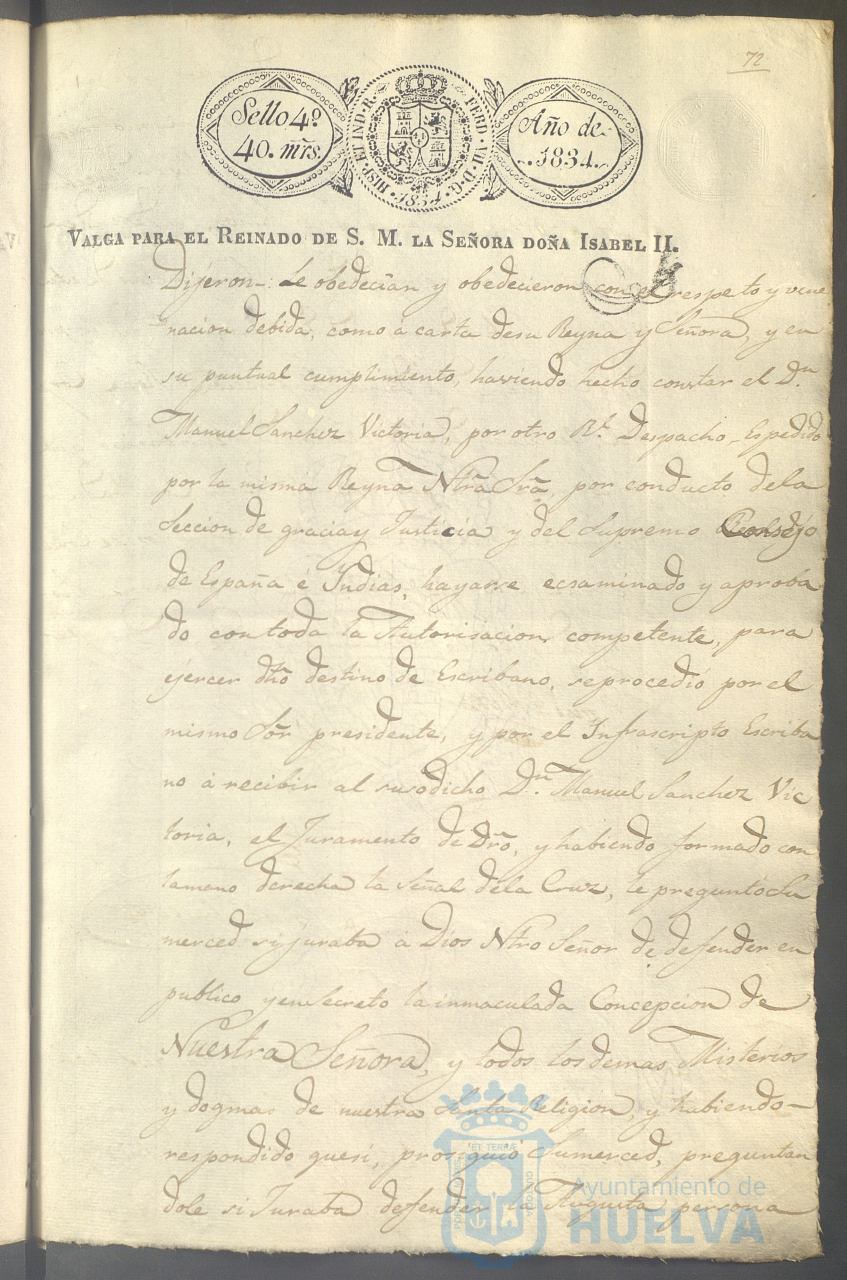 72
Sello 4º
40. mrs.
HISP. ET IND. R. FERD. VII. D. G. 1834
Año de
1834.
VALGA PARA EL REINADO DE S. M. LA SEÑORA DOÑA ISABEL II.
Dijeron: Le obedecian y obedecieron con el respeto y vene
nacion debida, como á carta desu Reyna y Señora, y en
su puntual cumplimiento, haviendo hecho constar el Dn
Manuel Sanchez Victoria, por otro Rl. Despacho, Espedido
por la misma Reyna Ntrã Srã, por conducto dela
Seccion de gracia y Justicia y del Supremo Consejo
de España é Yndias, hayarse ecsaminado y aproba
do con toda la Autorisacion competente, para
ejercer dhõ destino de Escribano, se procedió por el
mismo Sor presidente, y por el Infrascripto Escriba
no á recibir al susodicho Dn. Manuel Sanchez Vic
toria, el Juramento de Drõ, y habiendo formado con
lamano derecha la Señal dela Cruz, le preguntó Su
merced si juraba á Dios Ntro Señor de defender en
publico y en Secreto la inmaculada Concepcion de
Nuestra Señora, y todos los demas Misterios
y dogmas de nuestra Santa Religion, y habiendo
respondido que si, prosiguió Sumerced, preguntan
dole si Juraba defender la Augusta persona
ET TERRÆ
Ayuntamiento de
HUELVA